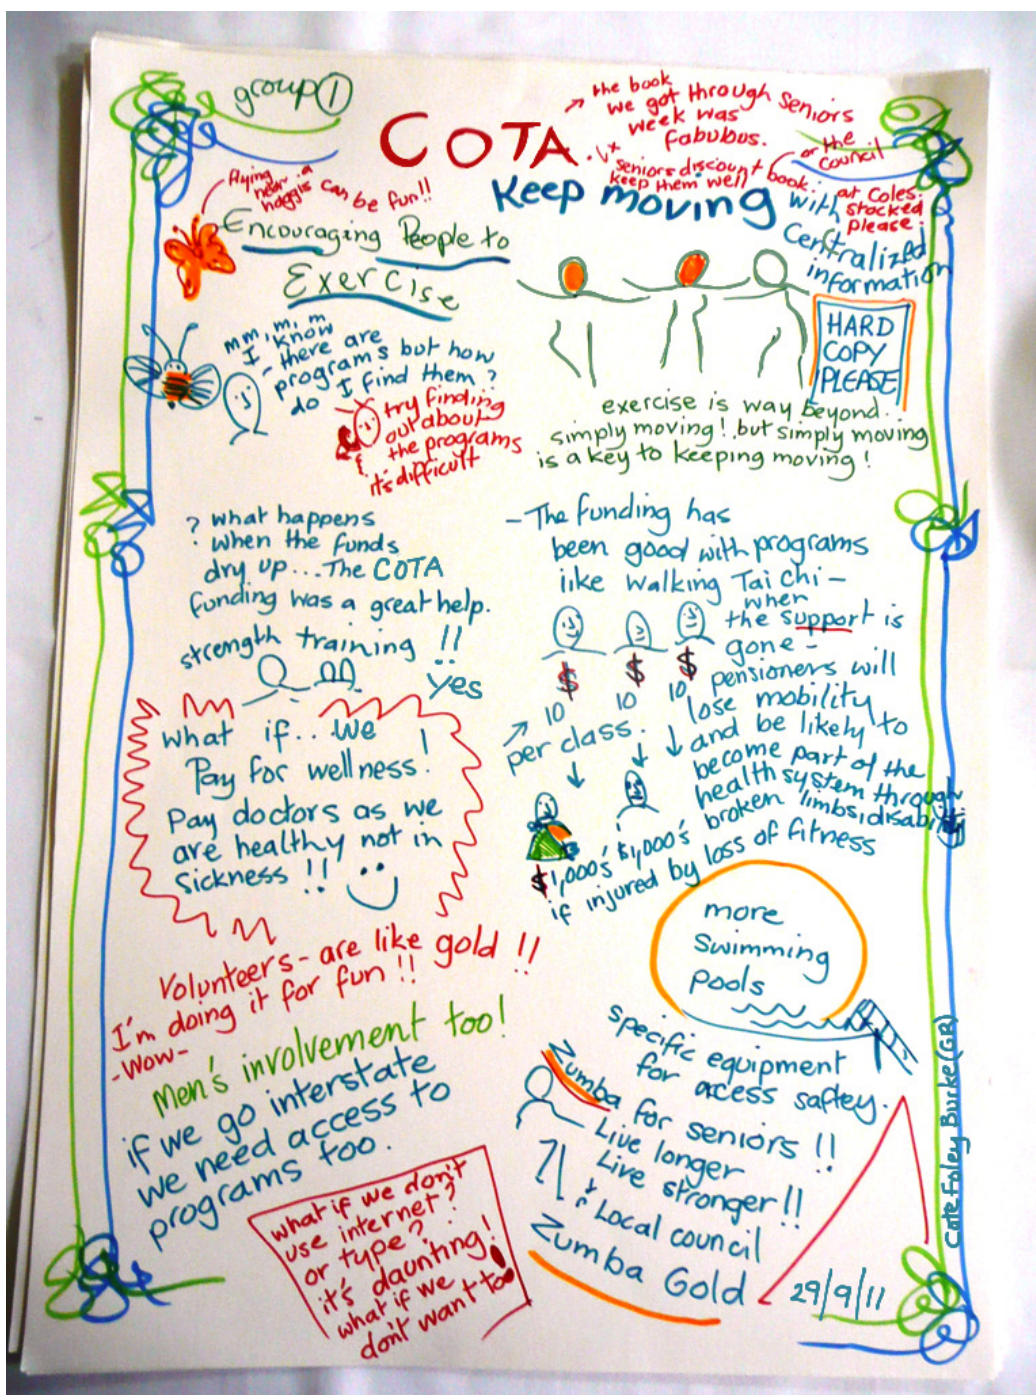 group 1
COTA
the book
we got through seniors
week was
fabulous.
or the
council
seniors discount book.
keep them well
at Coles.
stocked
please!
Keep moving
with
centralized
information
HARD
COPY
PLEASE
flying
near a
haggis can be fun!!
Encouraging People to
Exercise
mm, m, m
I know
there are
programs but how
do I find them?
try finding
out about
the programs
it's difficult
exercise is way beyond..
simply moving! but simply moving
is a key to keeping moving!
? what happens
? when the funds
dry up... The COTA
funding was a great help.
strength training !!
yes
- The funding has
been good with programs
like walking Tai chi -
when
the support is
gone -
pensioners will
lose mobility
and be likely to
become part of the
health system through
broken limbs, disability.
$ $ $
10 10 10
per class.
$1,000's $1,000's
if injured by loss of fitness
what if... we
Pay for wellness!
Pay doctors as we
are healthy not in
sickness !!
Volunteers - are like gold !!
I'm doing it for fun !!
- Wow -
Men's involvement too!
if we go interstate
we need access to
programs too.
what if we don't
use internet?
or type?
it's daunting!
what if we
don't want to!
more
swimming
pools
specific equipment
for acess saftey.
Zumba for seniors !!
Live longer
Live stronger!!
Local council
Zumba Gold
29/9/11
Cate Foley Burke (GR)